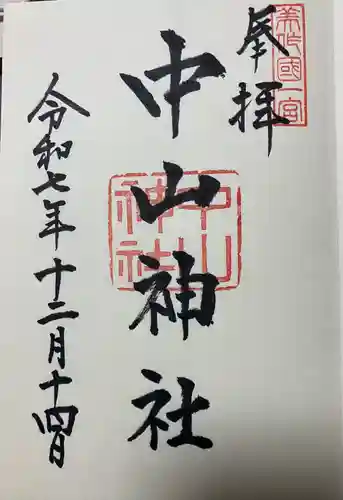 奉拝
美作國一宮
中山神社
中山神社
令和七年十二月十四日